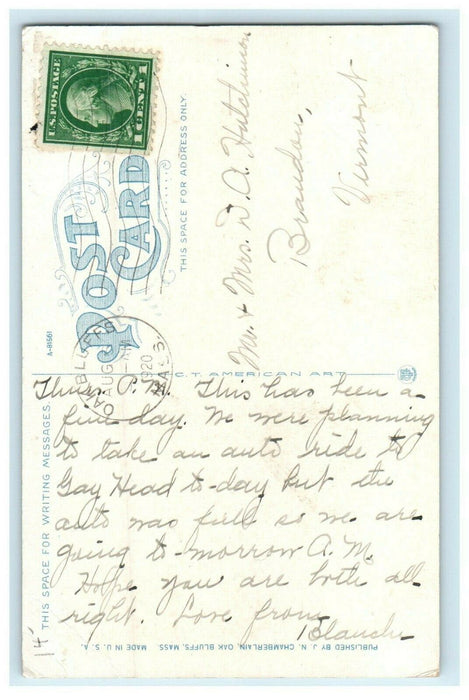 U.S. POSTAGE
1 CENT 1
POST
CARD
THIS SPACE FOR ADDRESS ONLY.
A-81561
OAK BLUFFS
AUG
1920
MASS.
Mr. & Mrs. D. A. Hutchinson
Brandon,
Vermont
C.T. AMERICAN ART
THIS SPACE FOR WRITING MESSAGES
Thurs. P.M. This has been a
fine day. We were planning
to take an auto ride to
Gay Head to-day but the
auto was full so we are
going to-morrow A.M.
Hope you are both all
right. Love from
Blanche
14
PUBLISHED BY J. N. CHAMBERLAIN, OAK BLUFFS, MASS. MADE IN U.S.A.